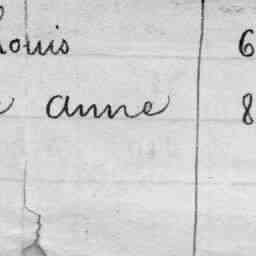 Louis 6
anne 8